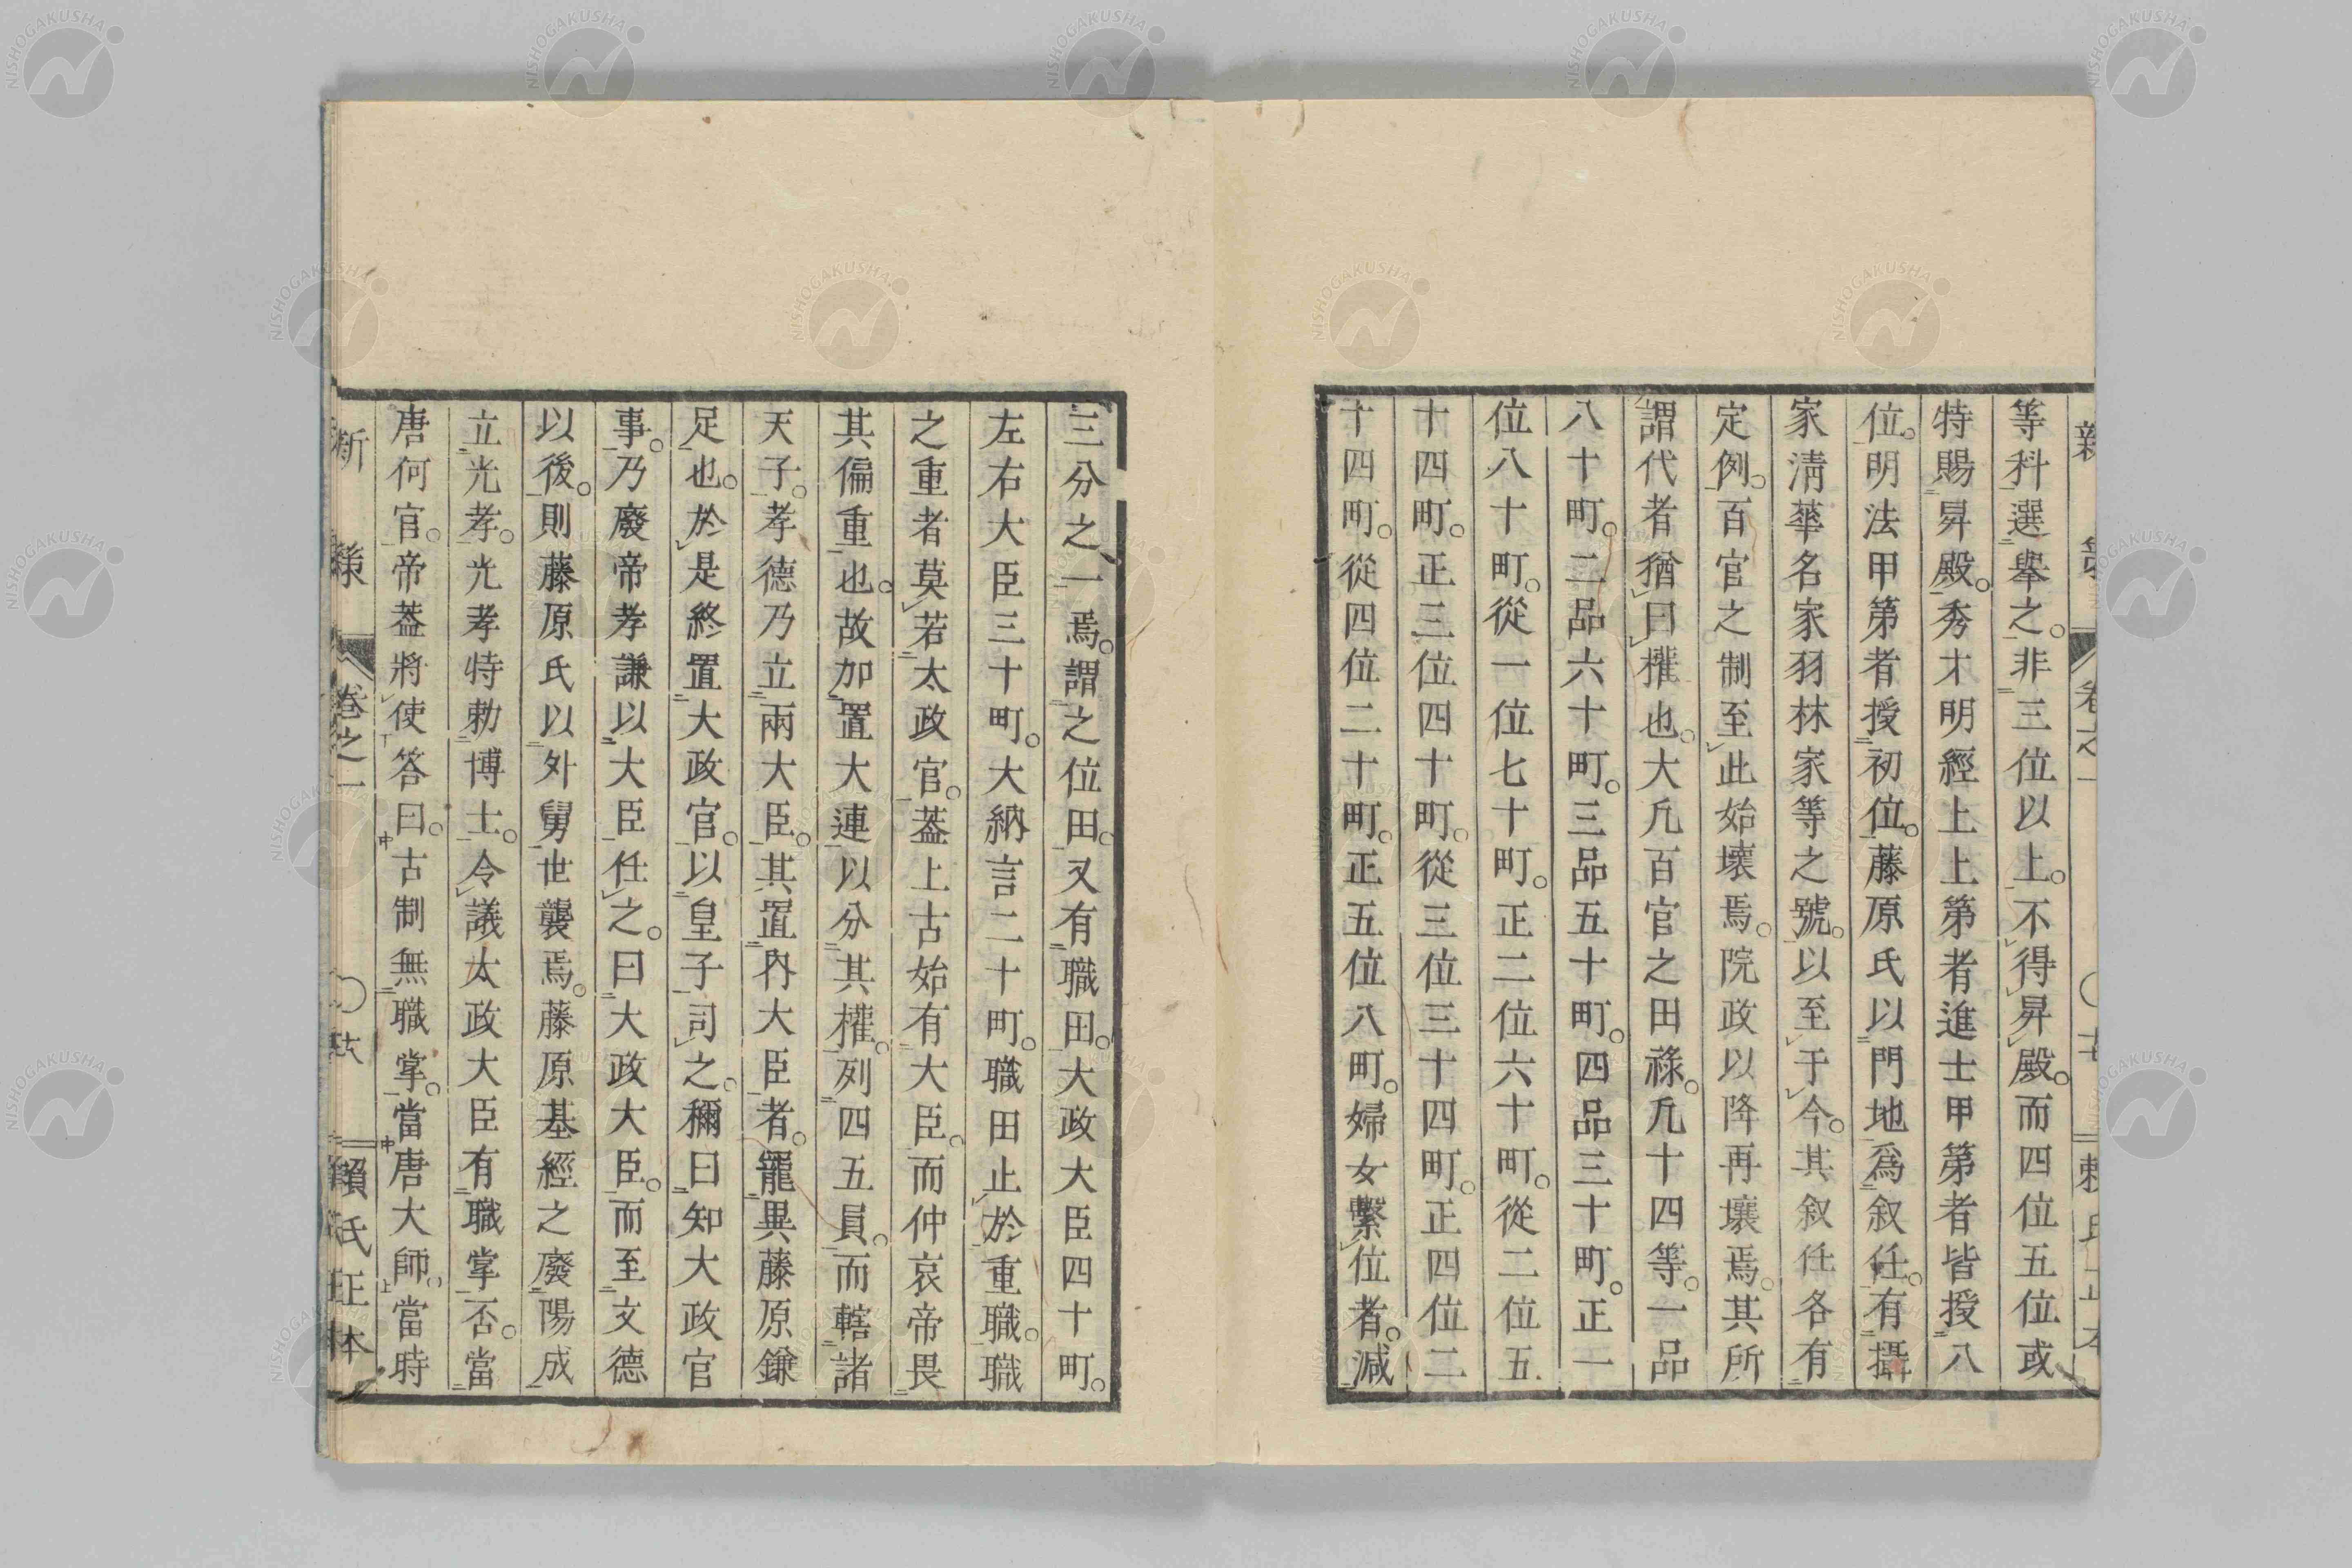 等科選擧之。非三位以上。不得昇殿。而四位五位或
特賜昇殿。秀才明經上上第者進士甲第者皆授八
位。明法甲第者授初位。藤原氏以門地爲叙任。有攝
家淸華名家羽林家等之號。以至于今。其叙任各有
定例。百官之制至此始壞焉。院政以降再壞焉。其所
謂代者猶曰權也。大凡百官之田祿。凡十四等。一品
八十町。二品六十町。三品五十町。四品三十町。正一
位八十町。從一位七十町。正二位六十町。從二位五
十四町。正三位四十町。從三位三十四町。正四位二
十四町。從四位二十町。正五位八町。婦女繫位者。減
三分之一焉。謂之位田。又有職田。大政大臣四十町。
左右大臣三十町。大納言二十町。職田止於重職。職
之重者莫若太政官。葢上古始有大臣。而仲哀帝畏
其偏重也。故加置大連以分其權。列四五員。而轄諸
天子。孝德乃立兩大臣。其置內大臣者。寵異藤原鎌
足也。於是終置大政官。以皇子司之。稱曰知大政官
事。乃廢帝孝謙以大臣任之。曰大政大臣。而至文德
以後。則藤原氏以外舅世襲焉。藤原基經之廢陽成
立光孝。光孝特勅博士。令議太政大臣有職掌否。當
唐何官。帝葢將使答曰。古制無職掌。當唐大師。當時
新策 卷之一 賴氏正本
NISHOGAKUSHA